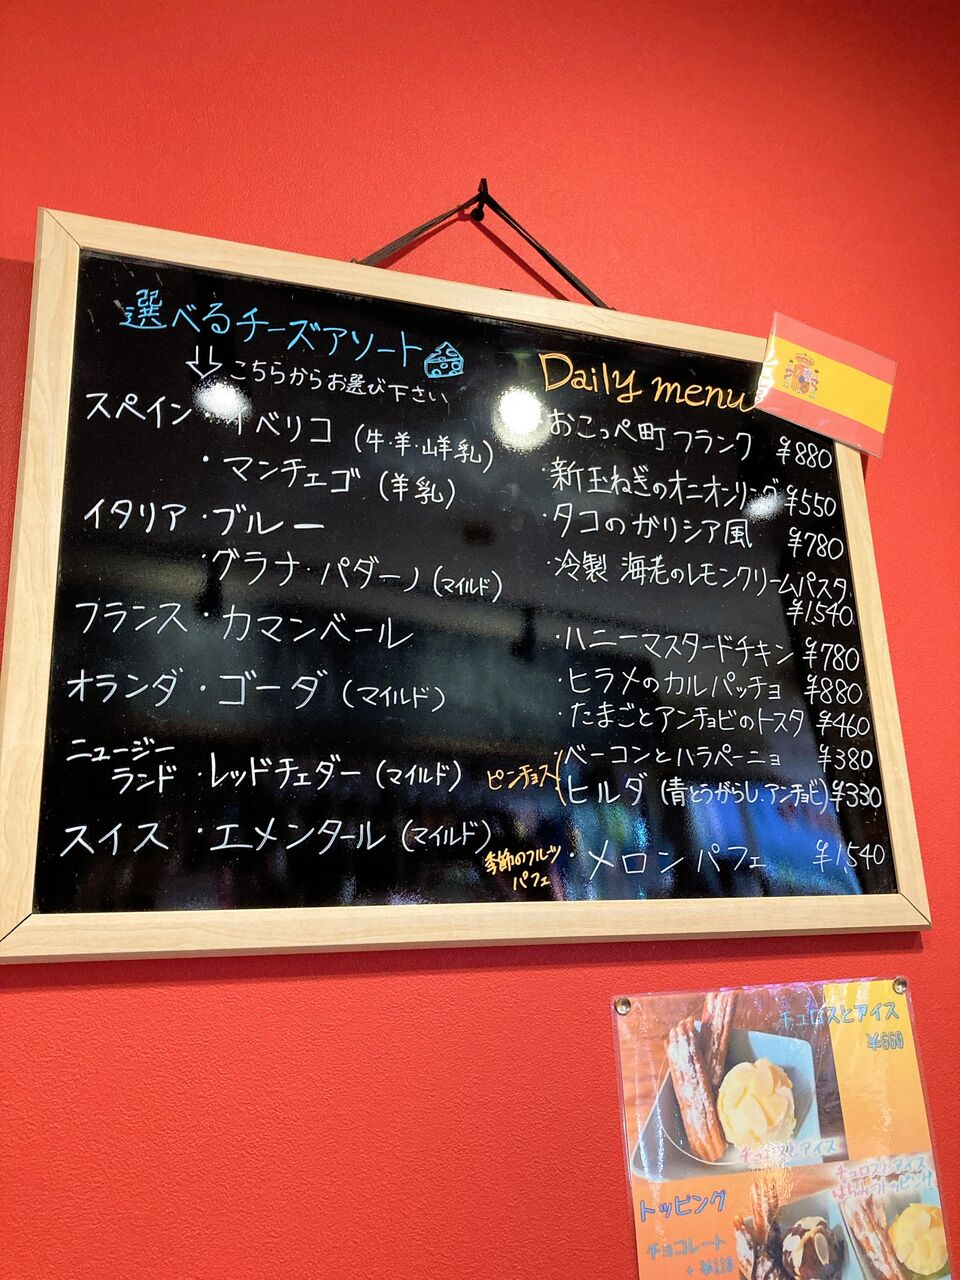 選べるチーズアソート
こちらからお選び下さい
スペイン ・イベリコ (牛・羊・山羊乳)
・マンチェゴ (羊乳)
イタリア ・ブルー
・グラナ・パダーノ (マイルド)
フランス ・カマンベール
オランダ ・ゴーダ (マイルド)
ニュージー
ランド ・レッドチェダー (マイルド)
スイス ・エメンタール (マイルド)
Daily menu
・おこっぺ町フランク ¥880
・新玉ねぎのオニオンリング ¥550
・タコのガリシア風 ¥780
・冷製 海老のレモンクリームパスタ
¥1,540
・ハニーマスタードチキン ¥780
・ヒラメのカルパッチョ ¥880
・たまごとアンチョビのトスタ ¥460
ピンチョス
ベーコンとハラペーニョ ¥380
ヒルダ (青とうがらし、アンチョビ) ¥330
季節のフルーツ
パフェ
・メロンパフェ ¥1,540
チュロスとアイス
¥660
チュロスとアイス
チュロスとアイス
はちみつトッピング
トッピング
チョコレート
+ ¥110